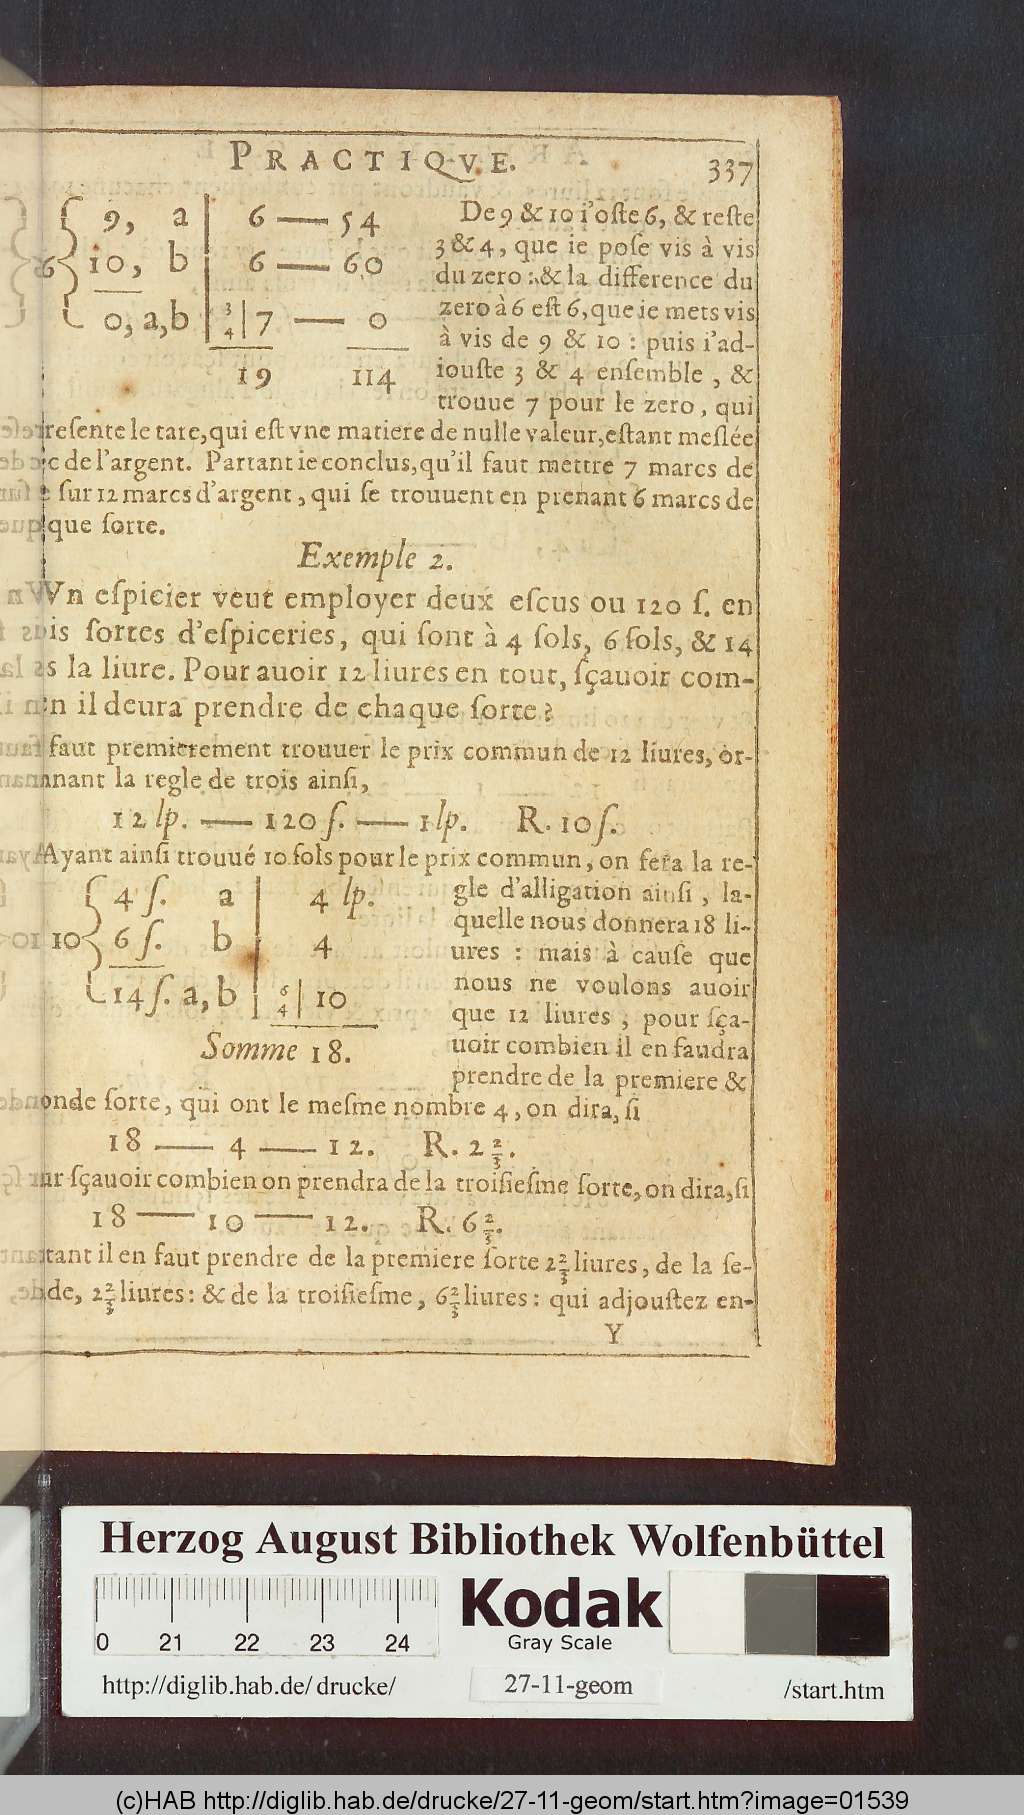 PRACTIQVE. 337
9, a | 6 — 54
6 10, b | 6 — 60
0, a,b | 3/4 | 7 — 0
19 114
De 9 & 10 i'oſte 6, & reſte
3 & 4, que ie poſe vis à vis
du zero : & la difference du
zero à 6 eſt 6, que ie mets vis
à vis de 9 & 10 : puis i'ad-
iouſte 3 & 4 enſemble , &
trouue 7 pour le zero , qui
reſente le tare, qui eſt vne matiere de nulle valeur, eſtant meſlée
c de l'argent. Partant ie conclus, qu'il faut mettre 7 marcs de
ſur 12 marcs d'argent , qui ſe trouuent en prenant 6 marcs de
que ſorte.
Exemple 2.
Vn eſpicier veut employer deux eſcus ou 120 ſ. en
is ſortes d'eſpiceries, qui ſont à 4 ſols, 6 ſols, & 14
s la liure. Pour auoir 12 liures en tout, ſçauoir com-
n il deura prendre de chaque ſorte ?
faut premierement trouuer le prix commun de 12 liures, or-
nant la regle de trois ainſi,
12 lp. — 120 ſ. — 1 lp. R. 10 ſ.
Ayant ainſi trouué 10 ſols pour le prix commun, on fera la re-
4 ſ. a | 4 lp.
10 6 ſ. b | 4
14 ſ. a, b | 6/4 | 10
Somme 18.
gle d'alligation ainſi , la-
quelle nous donnera 18 li-
ures : mais à cauſe que
nous ne voulons auoir
que 12 liures , pour ſça-
uoir combien il en faudra
prendre de la premiere &
onde ſorte, qui ont le meſme nombre 4 , on dira, ſi
18 — 4 — 12. R. 2 2/3.
ur ſçauoir combien on prendra de la troiſieſme ſorte, on dira, ſi
18 — 10 — 12. R. 6 2/3.
tant il en faut prendre de la premiere ſorte 2 2/3 liures, de la ſe-
de, 2 2/3 liures : & de la troiſieſme, 6 2/3 liures : qui adjouſtez en-
Y
Herzog August Bibliothek Wolfenbüttel
0 21 22 23 24
Kodak
Gray Scale
http://diglib.hab.de/ drucke/ 27-11-geom /start.htm
(c)HAB http://diglib.hab.de/drucke/27-11-geom/start.htm?image=01539